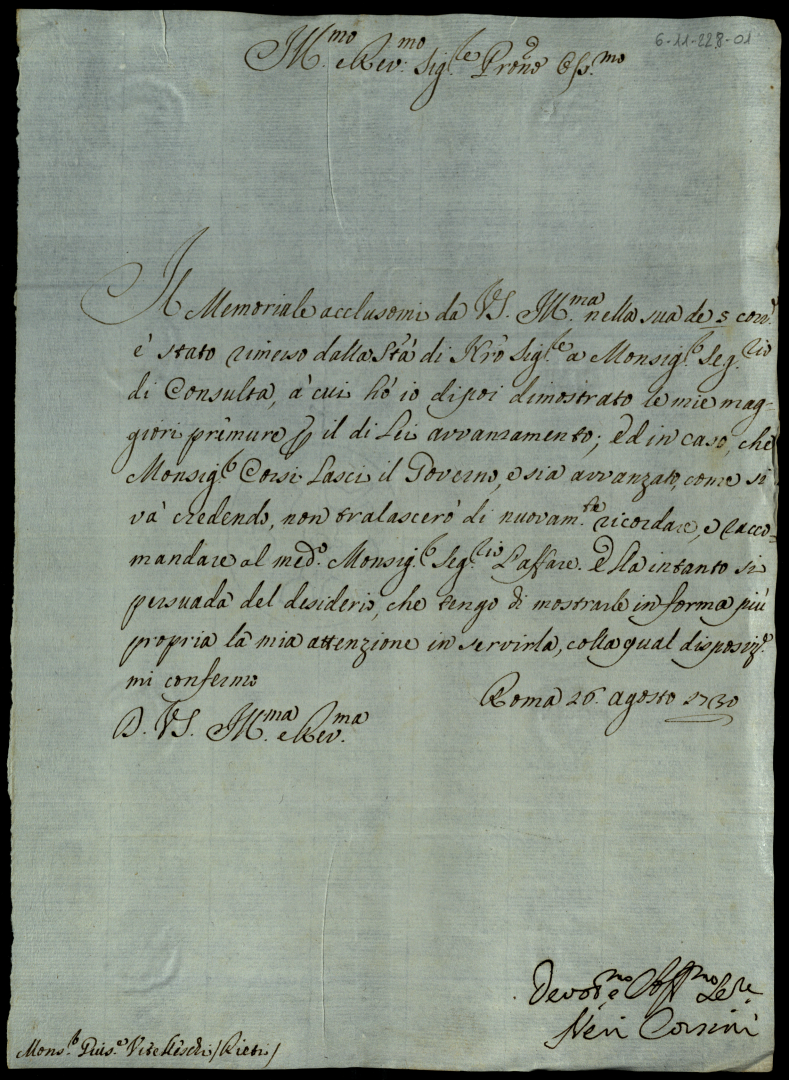 6-11-228-01
Ill.mo e Rev.mo Sig.re Pron͞e Oss.mo
Il Memoriale acclusomi da VS. Ill.ma nella sua de 5 corr.e
è stato rimesso dalla S͞tà di N͞ro Sig.re a Monsig.r Seg.rio
di Consulta, à cui hò io dipoi dimostrato le mie mag-
giori premure p il di Lei avvanzamento; ed in caso, che
Monsig.r Corsi lasci il Governo, e sia avvanzato, come si
và credendo, non tralascerò di nuovam.te ricordare, e racco-
mandare al med.o Monsig.r Seg.rio l'affare. Ella intanto si
persuada del desiderio, che tengo di mostrarle in forma più
propria la mia attenzione in servirla, colla qual disposiz.e
mi confermo
Roma 26. agosto 1730
D. VS. Ill.ma e Rev.ma
Devot.mo Obl.mo Ser.re
Neri Corsini
Mons.r Pius.o Vitelleschi / Rieti /